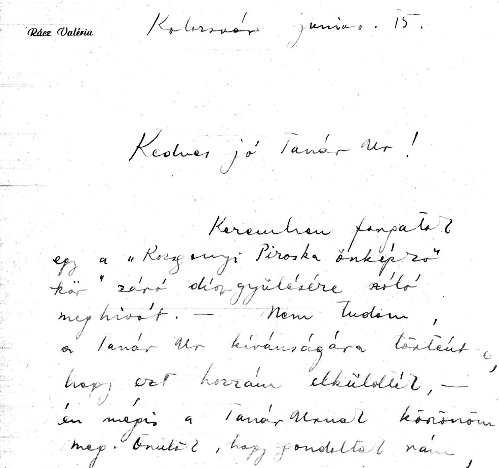 Rácz Valéria
Kolozsvár junius. 15.
Kedves jó Tanár Ur!
Kezemben forgatok
egy a „Rozgonyi Piroska önképző
kör" záró díszgyülésére szóló
meghivót. — Nem tudom,
a Tanár Ur kívánságára történt e,
hogy ezt hozzám elküldték, —
én mégis a Tanár Urnak köszönöm
meg. Örülök, hogy gondoltak rám,